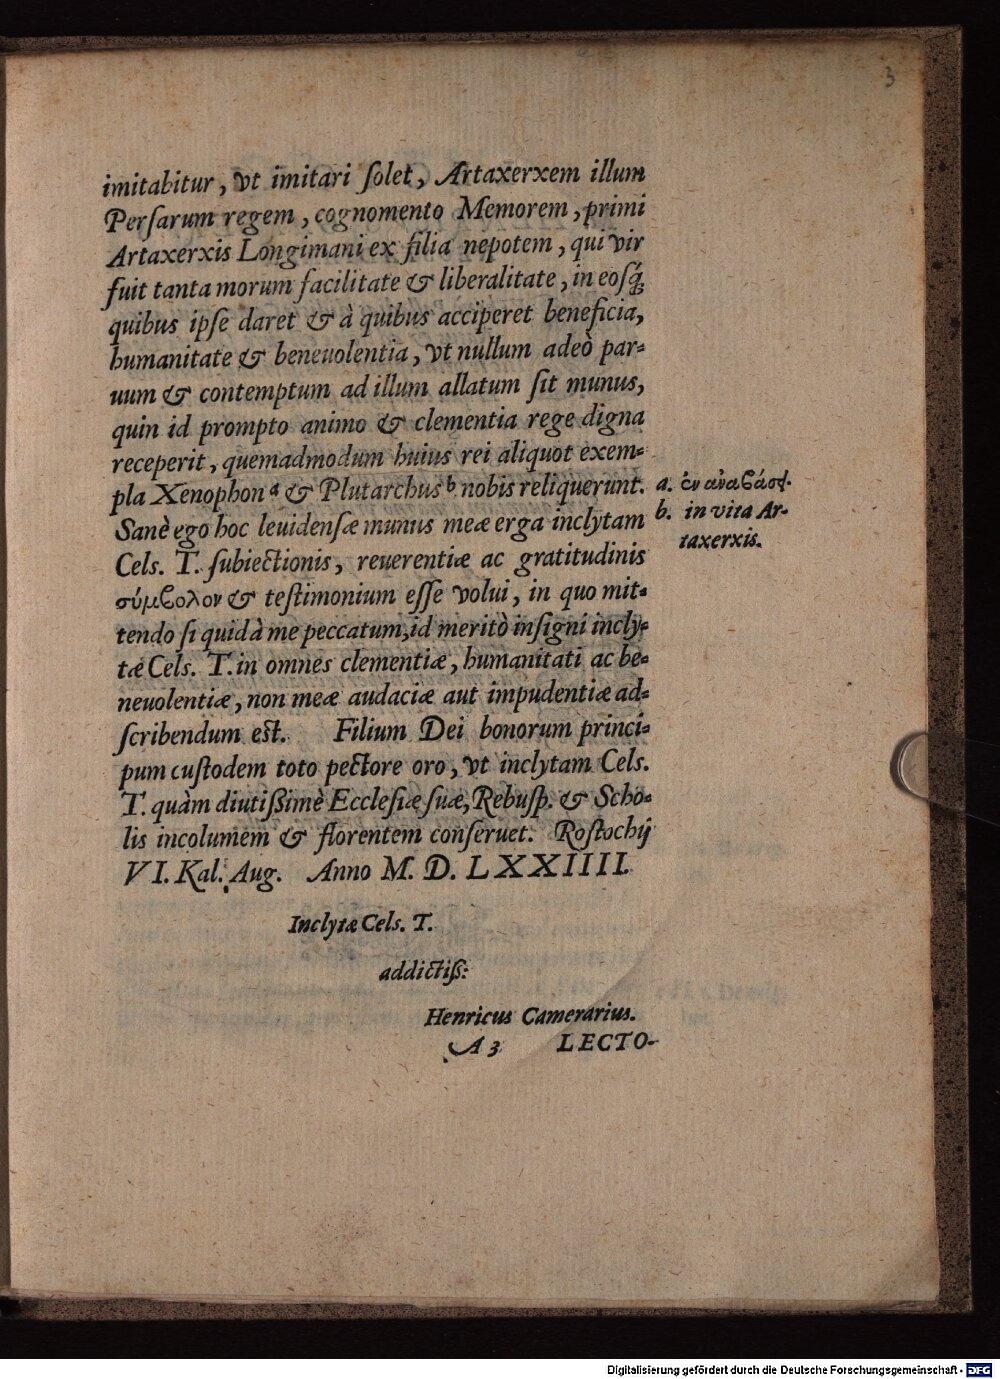 3
imitabitur, vt imitari ſolet, Artaxerxem illum
Perſarum regem, cognomento Memorem, primi
Artaxerxis Longimani ex filia nepotem, qui vir
fuit tanta morum facilitate & liberalitate, in eoſq́;
quibus ipſe daret & à quibus acciperet beneficia,
humanitate & beneuolentia, vt nullum adeò par-
uum & contemptum ad illum allatum ſit munus,
quin id prompto animo & clementia rege digna
receperit, quemadmodum huius rei aliquot exem-
pla Xenophon a & Plutarchus b nobis reliquerunt.
a. ἐν ἀναβάσϛ.
b. in vita Ar-
taxerxis.
Sanè ego hoc leuidenſæ munus meæ erga inclytam
Cels. T. ſubiectionis, reuerentiæ ac gratitudinis
σύμβολον & teſtimonium eſſe volui, in quo mit-
tendo ſi quid à me peccatum, id meritò inſigni incly-
tæ Cels. T. in omnes clementiæ, humanitati ac be-
neuolentiæ, non meæ audaciæ aut impudentiæ ad-
ſcribendum eſt. Filium Dei bonorum princi-
pum cuſtodem toto pectore oro, vt inclytam Cels.
T. quàm diutiſſimè Eccleſiæ ſuæ, Rebuſp. & Scho-
lis incolumem & florentem conſeruet. Roſtochij
VI. Kal. Aug. Anno M. D. LXXIIII.
Inclytæ Cels. T.
addictiſſ:
Henricus Camerarius.
A 3 LECTO-
Digitalisierung gefördert durch die Deutsche Forschungsgemeinschaft - DFG